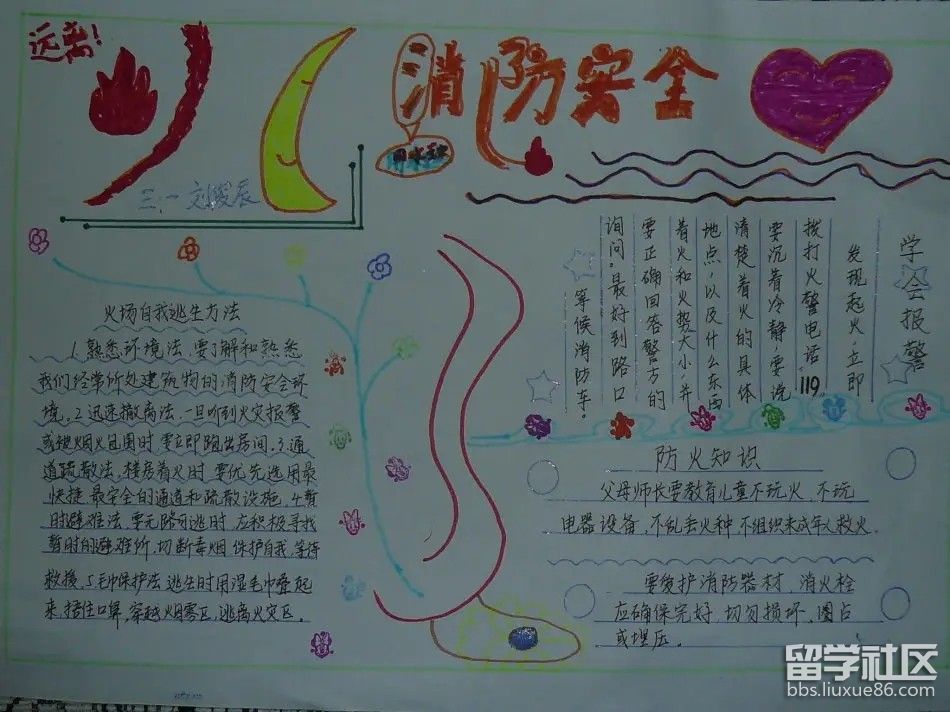 远离!
消防安全
三.一 刘俊辰
学会报警
发现起火,立即
拨打火警电话119。
要沉着冷静,要说
清楚着火的具体
地点,以及什么东西
着火和火势大小,并
要正确回答警方的
询问。最好到路口
等候消防车。
火场自我逃生方法
1.熟悉环境法,要了解和熟悉
我们经常所处建筑物的消防安全环
境。2.迅速撤离法,一旦听到火灾报警
或被烟火包围时,要立即跑出房间。3.通
道疏散法,楼房着火时,要优先选用最
快捷、最安全的通道和疏散设施。4.暂
时避难法,要无路可逃时,应积极寻找
暂时的避难所,切断毒烟,保护自我,等待
救援。5.毛巾保护法,逃生时用湿毛巾叠起
来,捂住口鼻,穿越烟雾区,逃离火灾区。
防火知识
父母师长要教育儿童不玩火、不玩
电器设备,不乱丢火种,不组织未成年人救火。
要爱护消防器材,消火栓
应确保完好,切勿损坏、圈占
或埋压。
留学社区
bbs.liuxue86.com